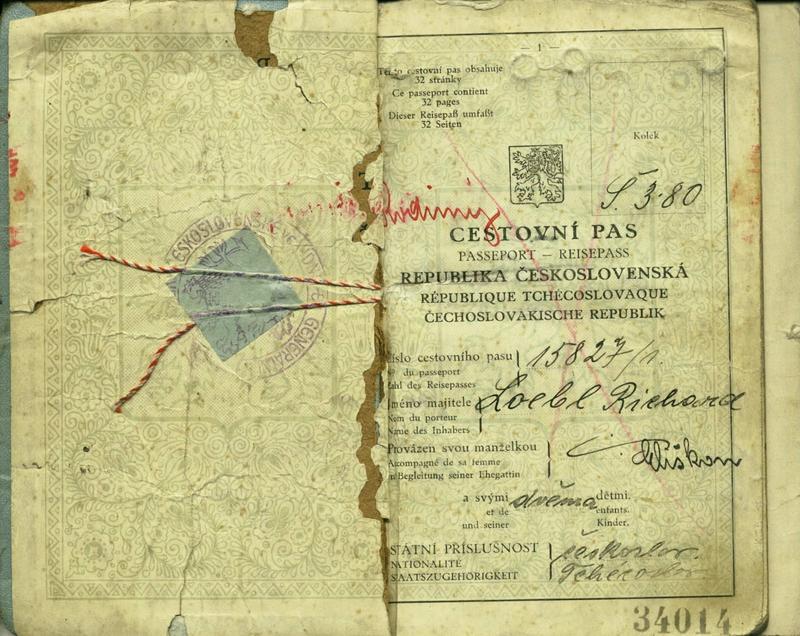 — 1 —
Tento cestovní pas obsahuje
32 stránky
Ce passeport contient
32 pages
Dieser Reisepaß umfaßt
32 Seiten
Kolek
Š. 3·80
CESTOVNÍ PAS
PASSEPORT – REISEPASS
REPUBLIKA ČESKOSLOVENSKÁ
RÉPUBLIQUE TCHÉCOSLOVAQUE
ČECHOSLOVAKISCHE REPUBLIK
GENERALE
íslo cestovního pasu 15827/
du passeport
ahl des Reisepasses
Jméno majitele Loebl Richard
Nom du porteur
Name des Inhabers
Provázen svou manželkou
Acompagné de sa femme
n Begleitung seiner Ehegattin
a svými dvěma dětmi.
et de enfants.
und seiner Kinder.
STÁTNÍ PŘÍSLUŠNOST českoslov.
NATIONALITÉ Tchécoslov
STAATSZUGEHÖRIGKEIT
34014